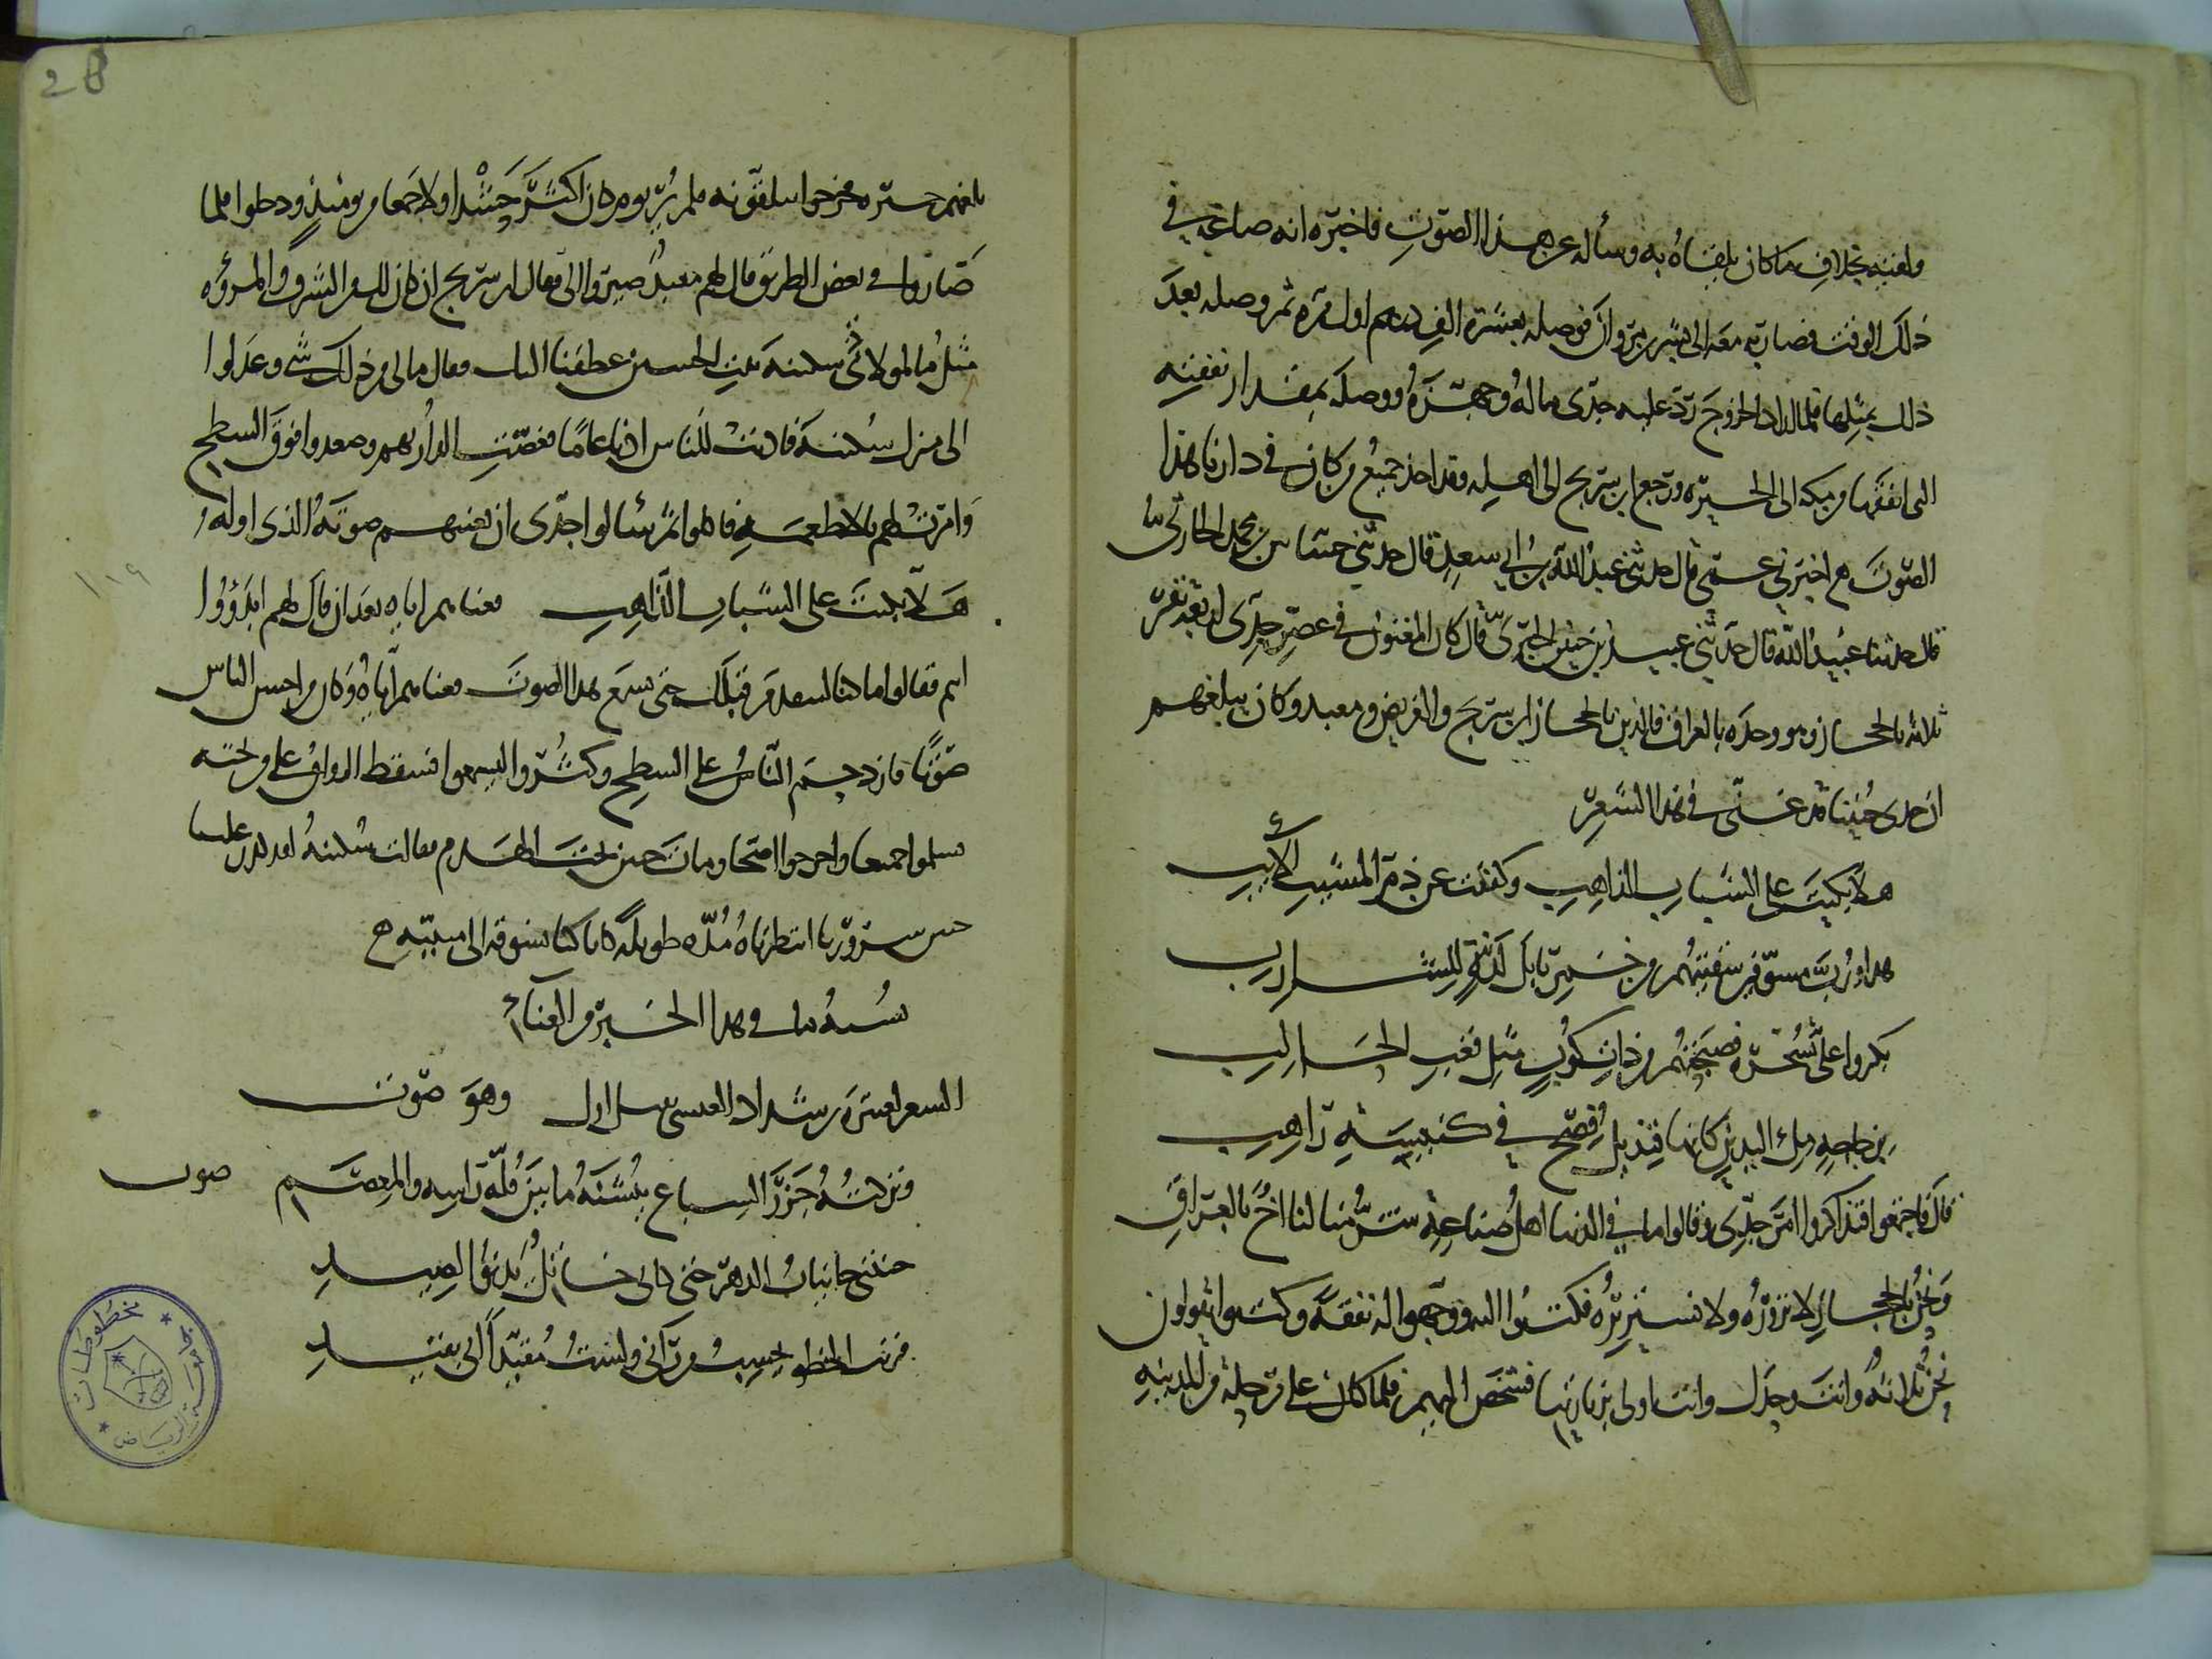 ولقيه بخلاف ما كان يلقاه به وسأله عن هذا الصوت فاخبره انه صاغه في
ذلك الوقت فصار به معه الى بشر بن مروان فوصله بعشرة الف درهم اول مرة ثم وصله بعد
ذلك بمثلها فلما اراد الخروج رد عليه جدى ماله وجهزه ووصله بمقدار نفقته
التى انفقها من مكه الى الحيرة ورجع ابن سريج الى اهله وقد اخذ جميع من كان في دارنا هذا
الصوت اخبرني عمى قال حدثنى عبد الله بن ابي سعد قال حدثني حسان بن محمد الحارثى
قال حدثنا عبيد الله قال حدثني عبيد بن حنين الحيرى قال كان المغنون في عصر جدى اربعة نفر
ثلاثة بالحجاز وهو وحده بالعراق فالذين بالحجاز ابن سريج والغريض ومعبد وكان يبلغهم
ان جدى حنينا قد غنى في هذا الشعر
هلا بكيت على الشباب الذاهب وكففت عن ذم المشيب الآيب
هذا ورب مسوفين سقيتهم من خمر بابل لذة للشارب
بكروا على بسحرة فصبحتهم من ذات كوب مثل قعب الحالب
بزجاجة ملء اليدين كانها قنديل فصح في كنيسة راهب
قال فاجتمعوا فتذاكروا امر جدى وقالوا ما في الدنيا اهل صناعة شر منا لنا اخ بالعراق
ونحن بالحجاز لا نزوره ولا نستزيره فكتبوا اليه ووجهوا له نفقة وكتبوا يقولون
نحن ثلاثة وانت وحدك وانت اولى بزيارتنا فشخص اليهم فلما كان على مرحلة من المدينة
28
بلغهم خبره فخرجوا يتلقونه فلم ير يوم كان اكثر حشدا ولا جمعا من يومئذ ودخلوا فلما
صاروا في بعض الطريق قال لهم معبد صيروا الى فقال ابن سريج ان كان لك من الشرف والمروة
مثل ما لمولاتى سكينة بنت الحسين عطفنا اليك فقال مالى من ذلك شي وعدلوا
الى منزل سكينة فاذنت للناس اذنا عاما فغصت الدار بهم وصعدوا فوق السطح
وامرت لهم بالاطعمة فاكلوا ثم سألوا جدى ان يغنيهم صوته الذى اوله
هلا بكيت على الشباب الذاهب فغناهم اياه بعد ان قال لهم ابدؤوا
انتم فقالوا ما كنا لنتقدم قبلك حتى نسمع هذا الصوت فغناهم اياه وكان من احسن الناس
صوتا فازدحم الناس على السطح وكثروا ليسمعوا فسقط الرواق على من تحته
فسلموا جميعا واخرجوا اصحا ومات حنين تحت الهدم فقالت سكينة لقد كدر علينا
حنين سرورنا انتظرناه مدة طويلة كانا كنا نسوقه الى منيته
نسبة ما في هذا الخبر من الغناء
الشعر لعنترة بن شداد العبسى وهو صوت
وتركته جزر السباع ينشنه ما بين قلة راسه والمعصم صوت
حنتنى حانيات الدهر حتى كانى خاتل يدنو لصيد
قريب الخطو يحسب من رآنى ولست مقيدا انى بقيد